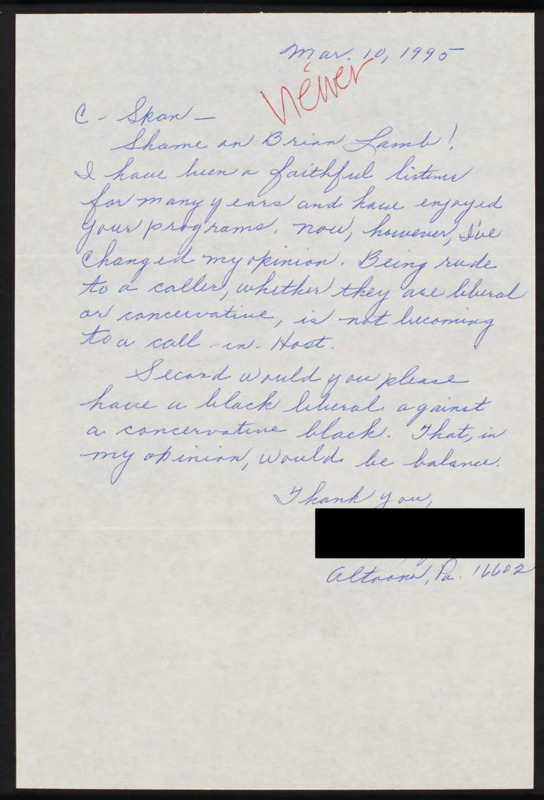 Mar. 10, 1995
Viewer
C - Span -
Shame on Brian Lamb!
I have been a faithful listener
for many years and have enjoyed
your programs. Now, however, I've
changed my opinion. Being rude
to a caller, whether they are liberal
or concervative, is not becoming
to a call-in-Host.
Second would you please
have a black liberal against
a concervative black. That, in
my opinion, would be balance.
Thank you,
Altoona, Pa. 16602